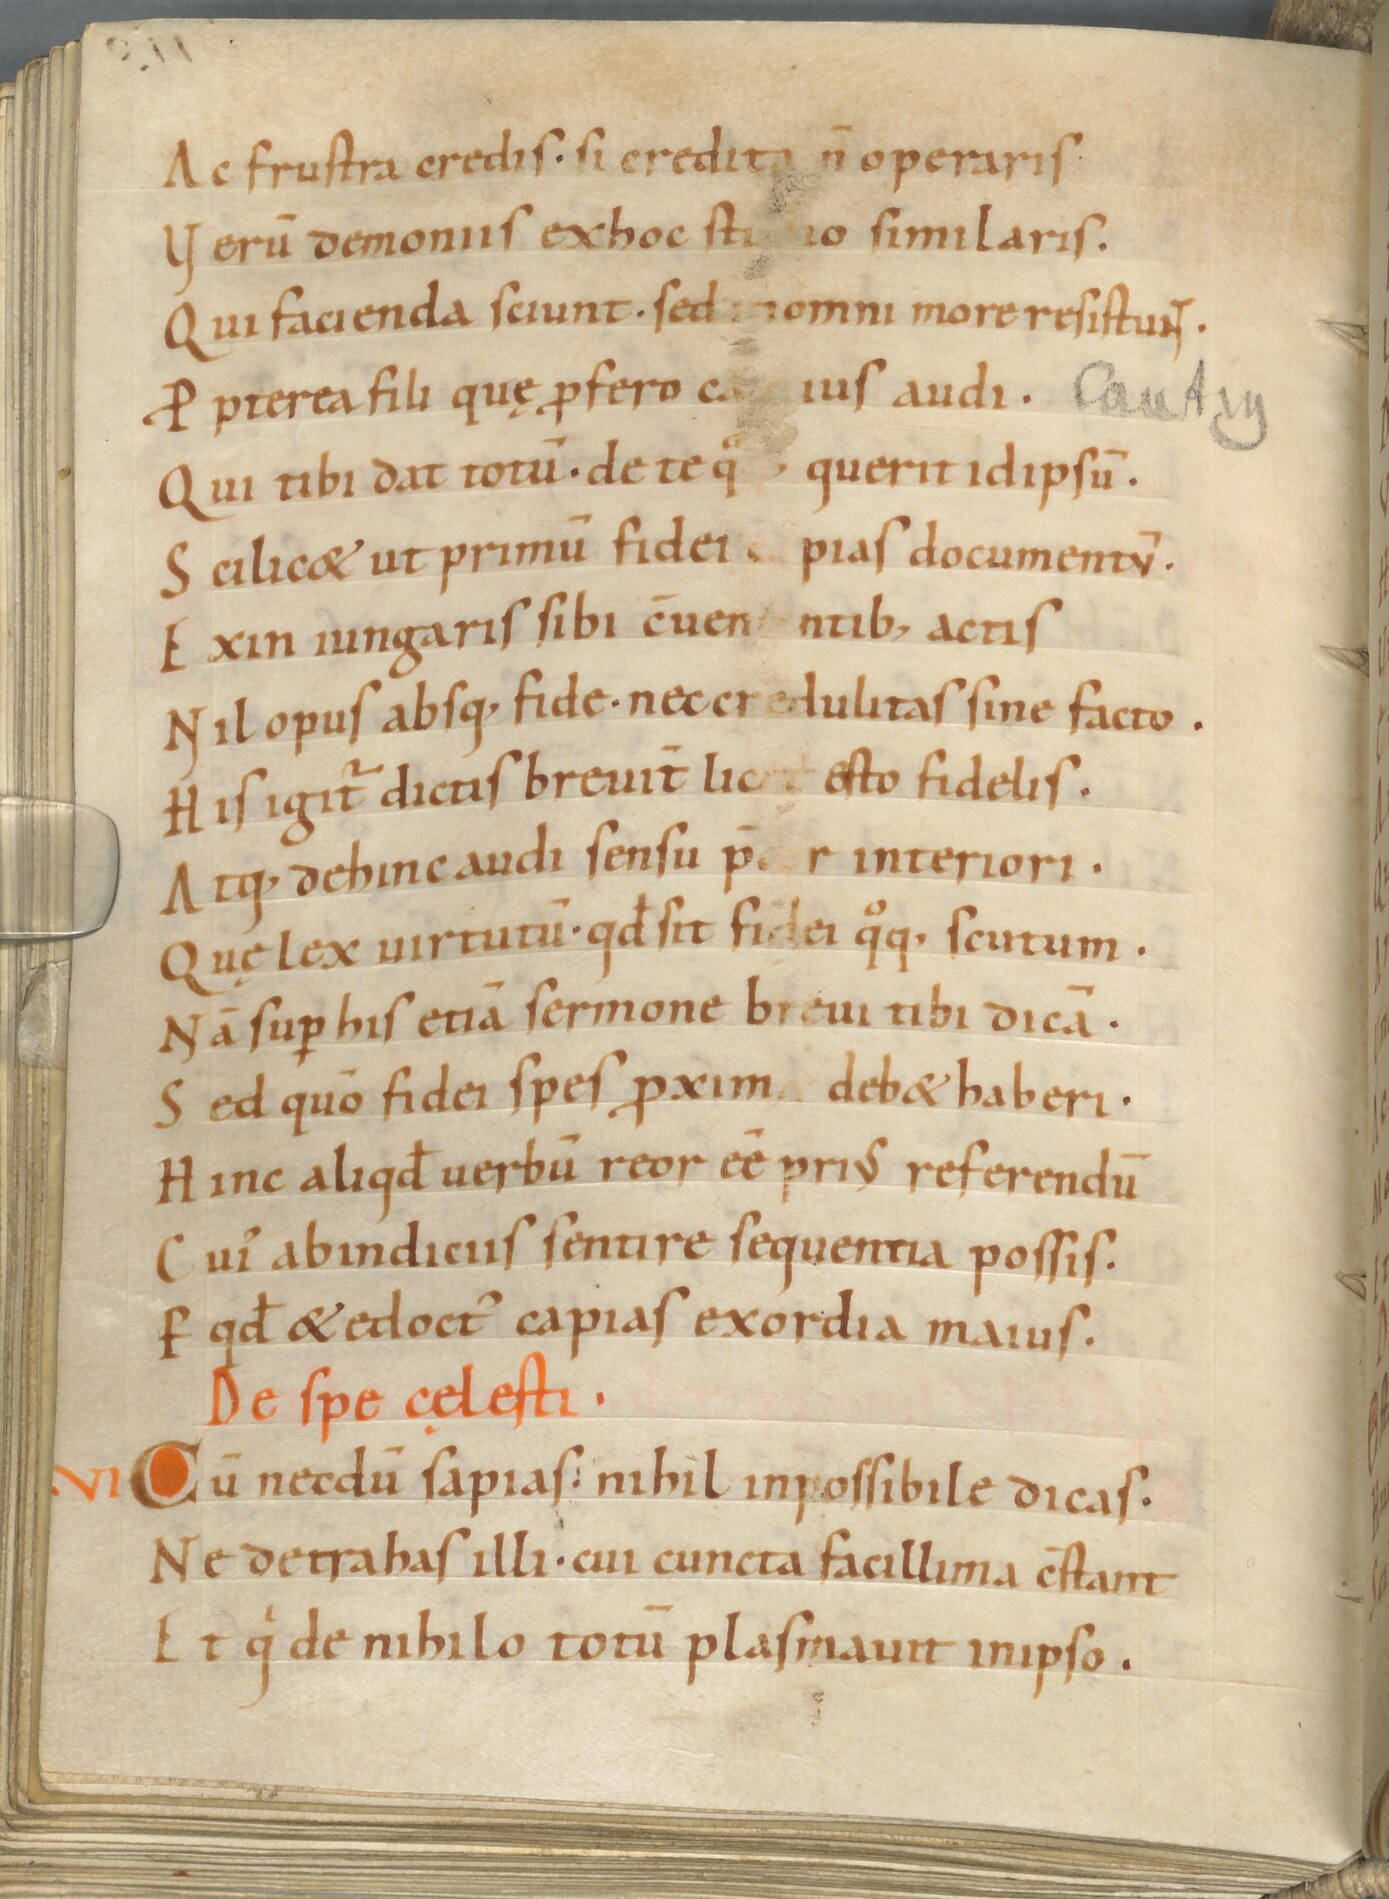 Ac frustra credis· si credita n̄ operaris
Verū demoniis exhoc simílaris.
Qui facienda sciunt· sed inomni more resistunt·
Ꝓpterea fili quę ꝓfero audi·
Qui tibi dat totū· de te qͦ querit idipsū·
Scilic& ut primū fidei documentū·
Exin iungaris sibi actis
Nil opus absq, fide· nec credulitas sine facto·
His igit᷑ dictis breuit̄ esto fidelis·
Atq, dehinc audi sensu interiori·
Quę lex uirtutū· qđ sit fidei qͦq, scutum·
Nā suꝑ his etiā sermone breui tibi dicā·
Sed quō fidei spes ꝓxim deb& haberi·
Hinc aliqđ uerbū reor eē̄ priꝰ referendū
Cui᾿ abindiciis sentire sequentia possis·
F qđ & edoctꝰ capias exordia maius·
De spe cęlesti·
VI Cū necdū sapias: nihil inpossibile dicas·
Ne detrahas illi· cui cuncta facillima c̄stant
Et qͥ de nihilo totū plasmauit inipso·